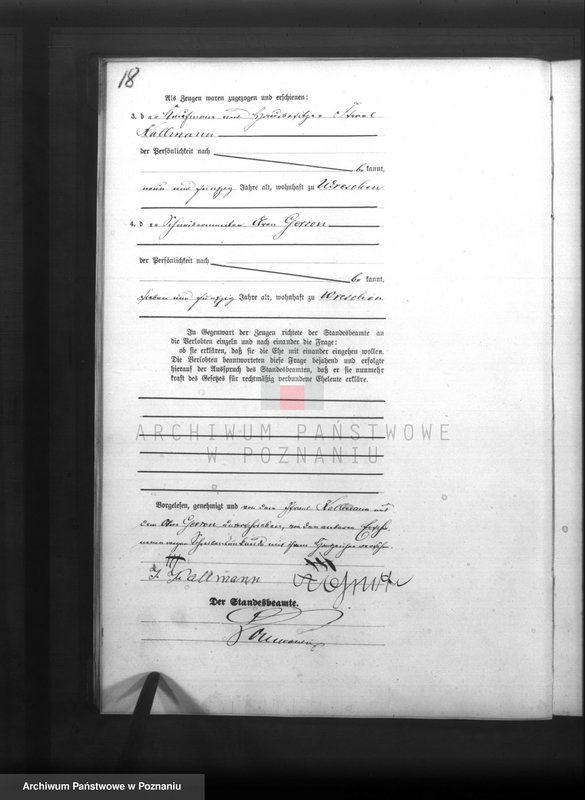 18
Als Zeugen waren zugezogen und erschienen:
3. d er Kaufmann und Hausbesitzer Israel
Kallmann
der Persönlichkeit nach
be kannt,
neun und fünfzig Jahre alt, wohnhaft zu Wreschen
4. d er Schneidermeister Aron Gerson
der Persönlichkeit nach
be kannt,
sieben und fünfzig Jahre alt, wohnhaft zu Wreschen
In Gegenwart der Zeugen richtete der Standesbeamte an
die Verlobten einzeln und nach einander die Frage:
ob sie erklären, daß sie die Ehe mit einander eingehen wollen.
Die Verlobten beantworteten diese Frage bejahend und erfolgte
hierauf der Ausspruch des Standesbeamten, daß er sie nunmehr
kraft des Gesetzes für rechtmäßig verbundene Eheleute erkläre.
ARCHIWUM PAŃSTWOWE
W POZNANIU
Vorgelesen, genehmigt und von dem Israel Kallmann und
dem Aron Gerson unterschrieben, von den anderen
wegen Schreibensunkunde mit ihrem Handzeichen versehen.
J. Kallmann
Der Standesbeamte.
Archiwum Państwowe w Poznaniu